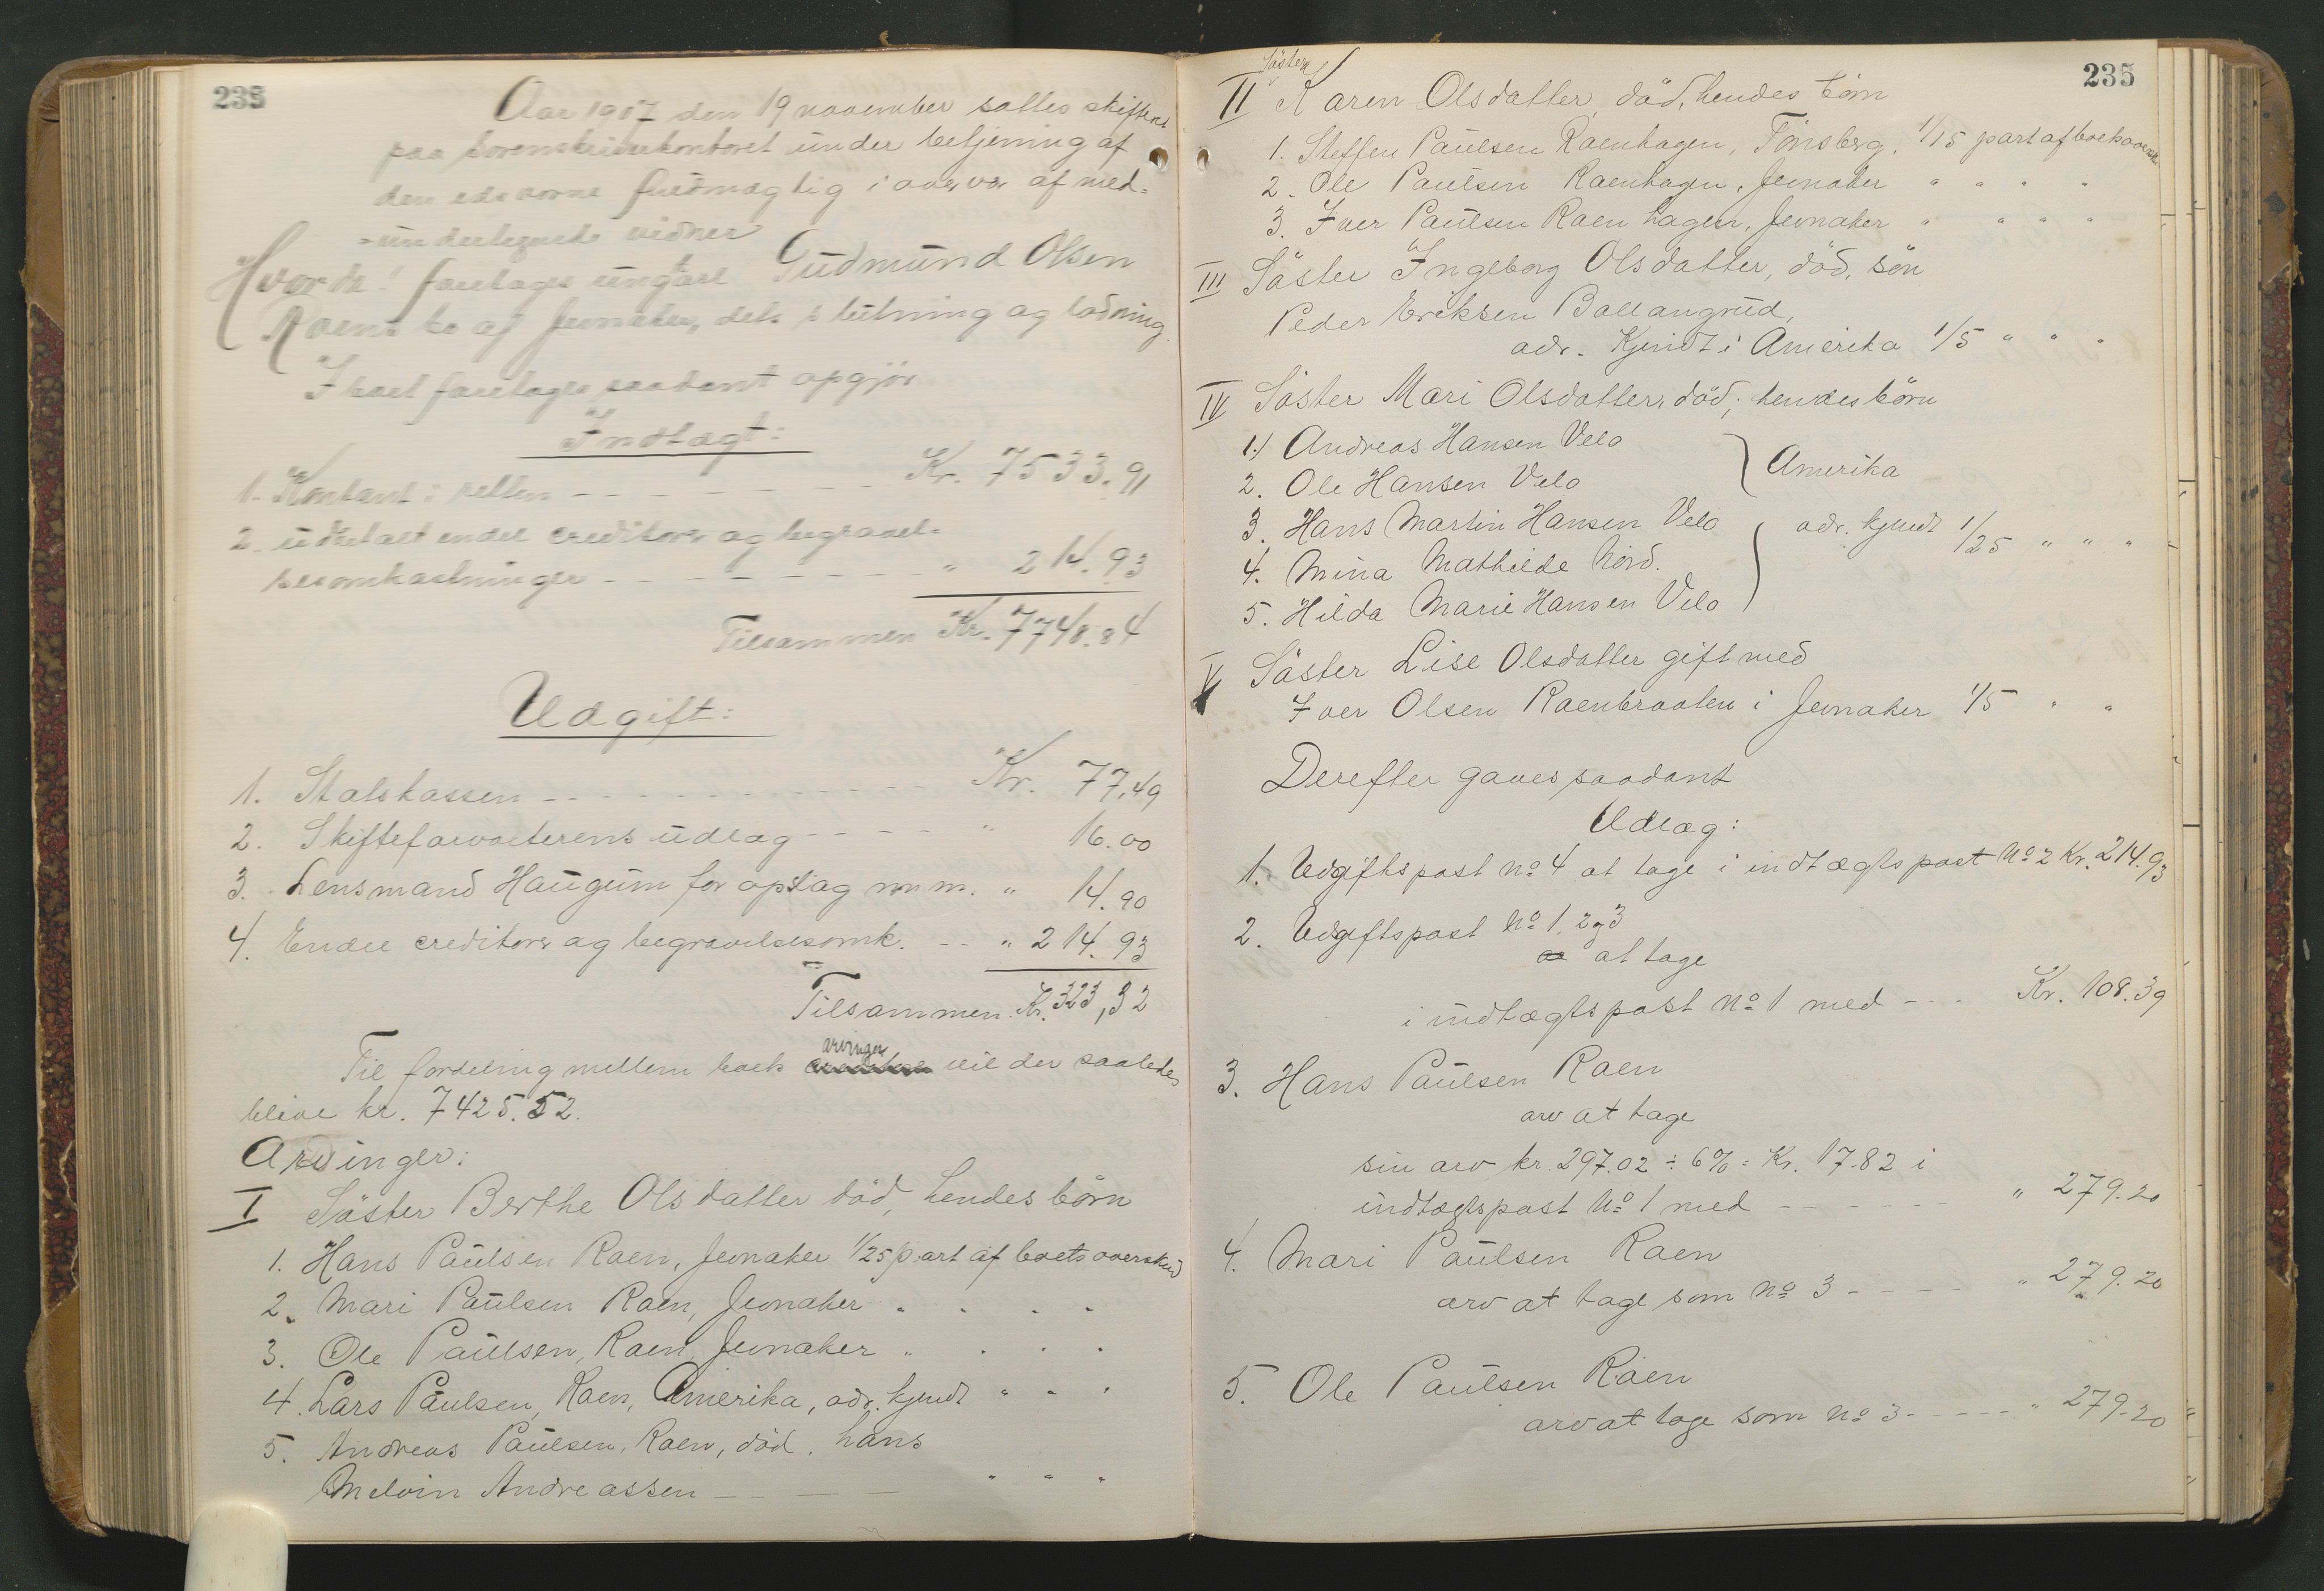 235
Aar 1907 den 19 november sattes skifteret
paa Sorenskriverkontoret under betjening af
den edsvorne fuldmægtig i overvær af med-
-undertegnede vidner
Hvorda! foretages ungkarl Gudmund Olsen
Raens bo af Jevnaker, dets slutning og lodning.
I boet foretages saadant opgjør
Indtægt:
1. Kontant i retten - - - - - Kr. 7533.91
2. udbetalt endel creditorer og begravel-
sesomkostninger - - - - - " 214.93
Tilsammen Kr. 7748.84
Udgift:
1. Statskassen - - - - - Kr. 77,49
2. Skifteforvalterens udlæg - - - - " 16.00
3. Lensmand Haugum for optag m.m. " 14.90
4. Endel creditorer og begravelsesomk. - - " 214.93
Tilsammen Kr. 323,32
arvinger
Til fordeling mellem boets vil der saaledes
blive kr. 7425.52.
Arvinger:
I Søster Berthe Olsdatter død, hendes børn
1. Hans Paulsen Raen, Jevnaker 1/25 part af boets overskud
2. Mari Paulsen Raen, Jevnaker " " " "
3. Ole Paulsen, Raen, Jevnaker " " " "
4. Lars Paulsen, Raen, Amerika, adr. kjendt " " "
5. Andreas Paulsen, Raen, død, hans
Melvin Andreassen - - - " " "
235
Søster
II Karen Olsdatter, død, hendes børn
1. Steffen Paulsen Raenhagen, Tønsberg, 1/15 part af boets oversk.
2. Ole Paulsen Raenhagen, Jevnaker " " " "
3. Iver Paulsen Raenhagen, Jevnaker " " " "
III Søster Ingeborg Olsdatter, død, søn
Peder Eriksen Ballangrud,
adr. Kjendt i Amerika 1/5 " " "
IV Søster Mari Olsdatter, død; hendes børn
1.) Andreas Hansen Velo
2. Ole Hansen Velo
Amerika
3. Hans Martin Hansen Velo
adr. kjendt 1/25 " " " "
4. Mina Mathilde Nord.
5. Hilda Marie Hansen Velo
V Søster Lise Olsdatter gift med
Iver Olsen Raenbraaten i Jevnaker 1/5 " "
Derefter gaves saadant
Udlæg:
1. Udgiftspost No 4 at tage i indtægtspost No 2 Kr. 214.93
2. Udgiftspost No 1, 2 og 3
at tage
i indtægtspost No 1 med - - - Kr. 108.39
3. Hans Paulsen Raen
arv at tage
sin arv kr. 297.02 ÷ 6% = Kr. 17.82 i
indtægtspost No 1 med - - - - - - " 279.20
4. Mari Paulsen Raen
arv at tage som No 3 - - - - " 279.20
5. Ole Paulsen Raen
arv at tage som No 3 - - - - - " 279.20